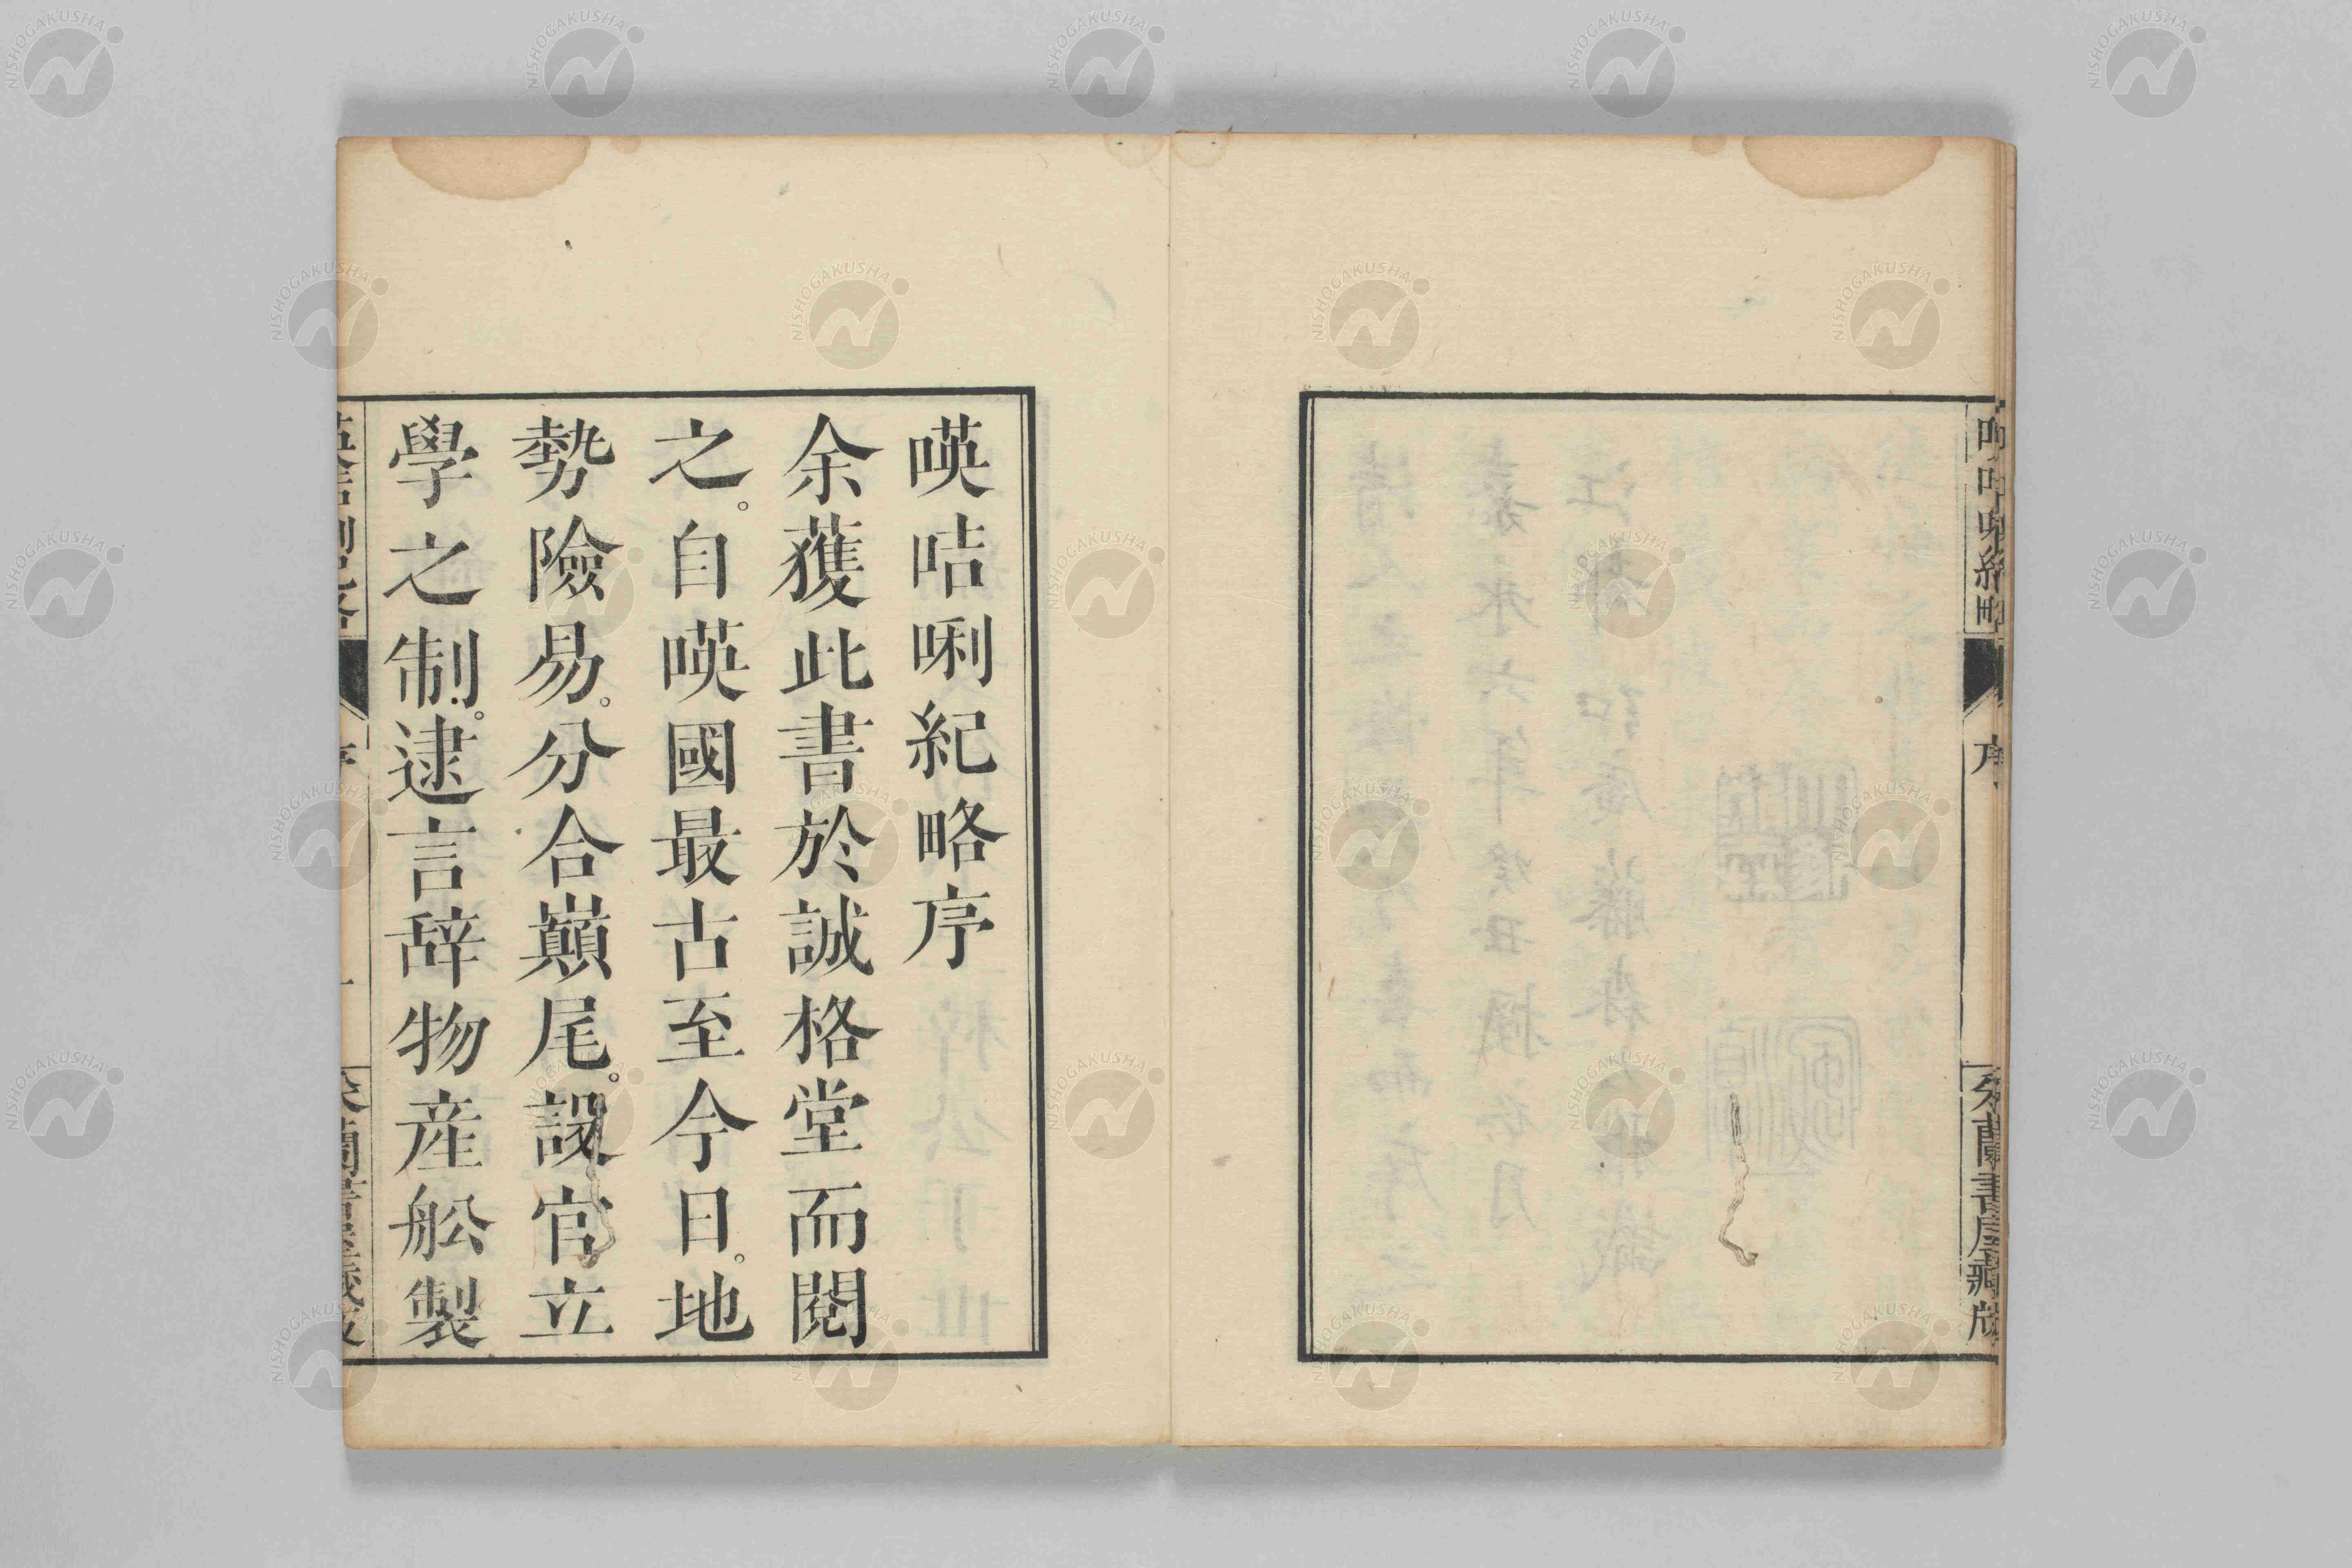 暎咭唎紀略序
余獲此書於誠格堂而閱
之。自暎國最古至今日。地
勢險易。分合巔尾。設官立
學之制。逮言辞物産舩製
序
蘭書房藏
NISHOGAKUSHA